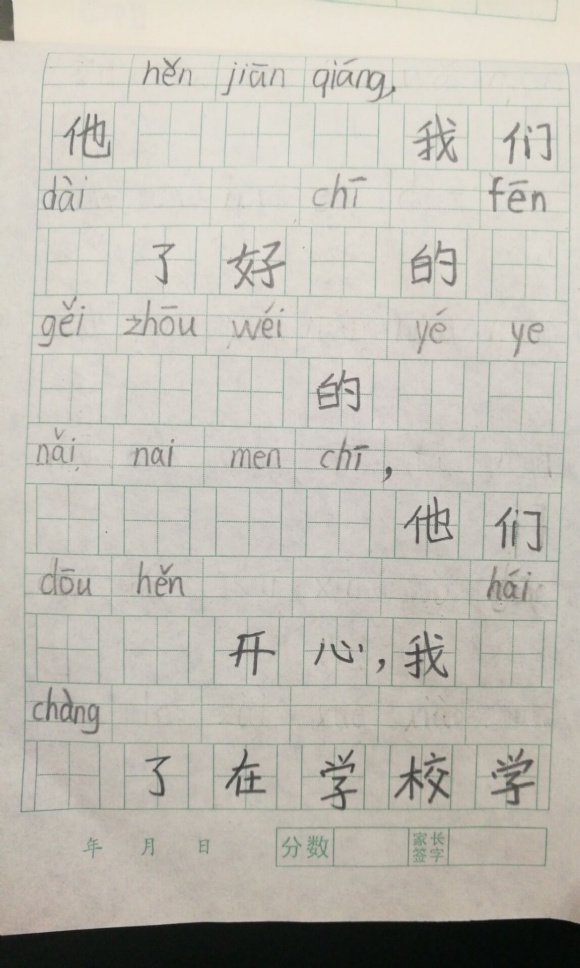 hěn jiān qiáng,
他 我们
dài chī fēn
了好 的
gěi zhōu wéi yé ye
的
nǎi nai men chī,
他们
dōu hěn hái
开心,我
chàng
了在学校学
年 月 日 分数 家长签字